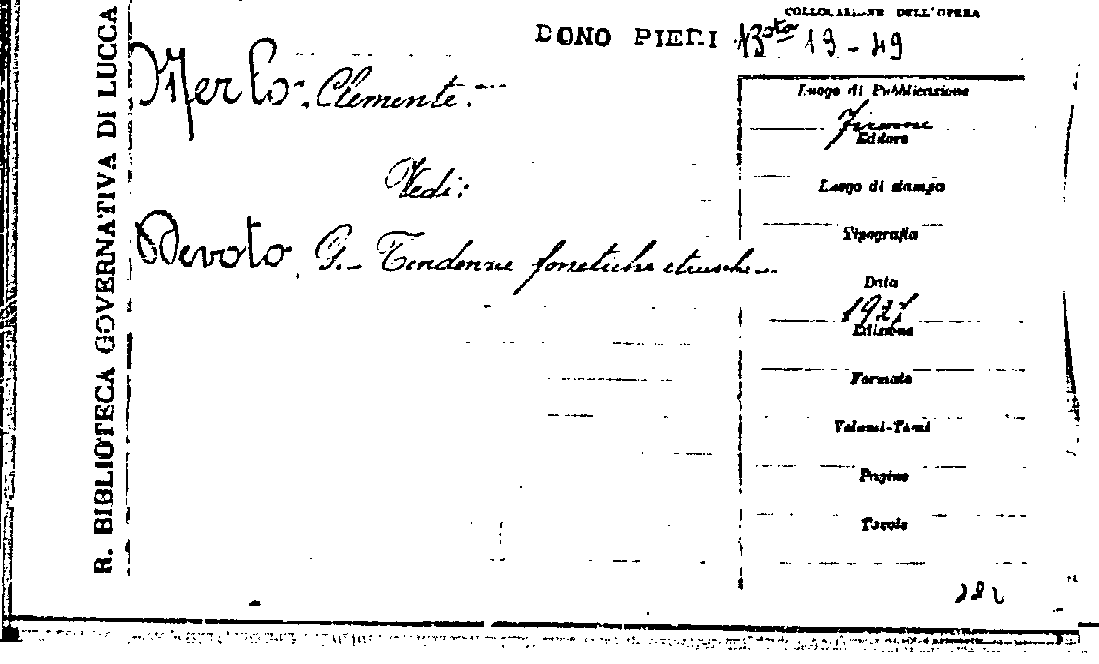 R. BIBLIOTECA GOVERNATIVA DI LUCCA
COLLOCAZIONE DELL'OPERA
DONO PIERI Bsta 19-49
Merlo. Clemente.
Vedi:
Devoto, G. - Tendenze fonetiche etrusche...
Luogo di Pubblicazione
Firenze
Editore
Luogo di stampa
Tipografia
Data
1927
Edizione
Formato
Volumi-Tomi
Pagine
Tavole